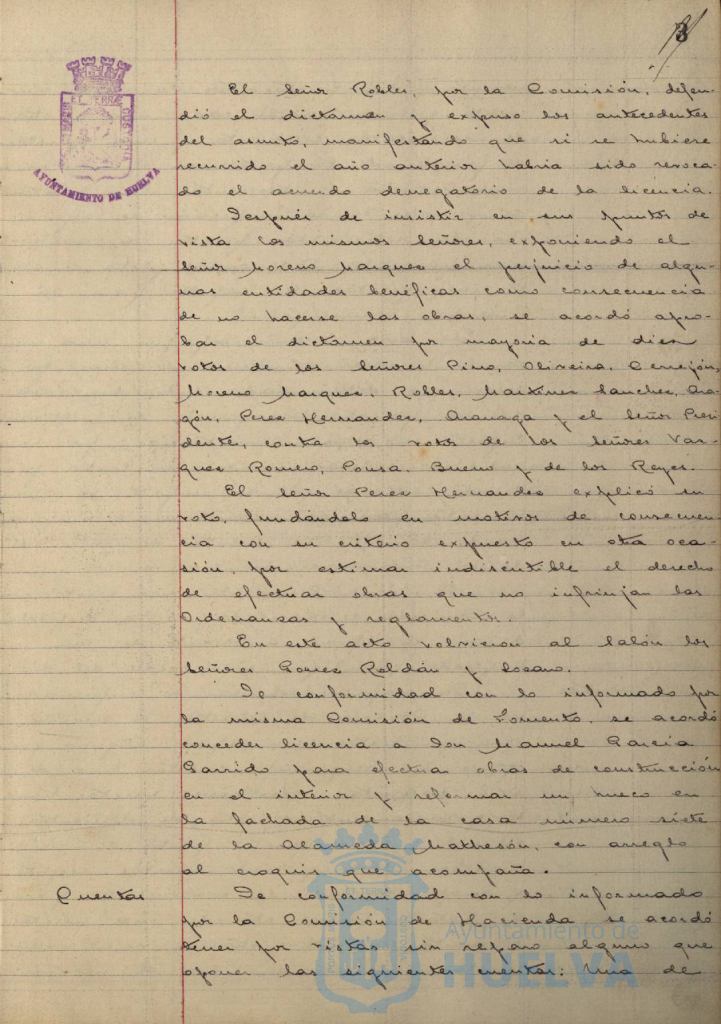 3
PORTUS MARIS ET TERRAE CUSTODIA
AYUNTAMIENTO DE HUELVA
El Señor Robles, por la Comisión, defen-
dió el dictamen y expuso los antecedentes
del asunto, manifestando que si se hubiere
recurrido el año anterior habria sido revoca-
do el acuerdo denegatorio de la licencia.
Después de insistir en sus puntos de
vista los mismos Señores, exponiendo el
Señor Moreno Marquez el perjuicio de algu-
nas entidades benéficas como consecuencia
de no hacerse las obras, se acordó apro-
bar el dictamen por mayoria de diez
votos de los Señores Pino, Oliveira, Cerrejón,
Moreno Marquez, Robles, Martinez Sanchez, Ara-
gón, Perez Hernandez, Aranaga y el Señor Presi-
dente, contra los votos de los Señores Vaz-
quez Romero, Pousa, Bueno y de los Reyes.
El Señor Perez Hernandez explicó su
voto, fundándolo en motivos de consecuen-
cia con su criterio expuesto en otra oca-
sión, por estimar indiscutible el derecho
de efectuar obras que no infrinjan las
Ordenanzas y reglamentos.
En este acto volvieron al Salón los
Señores Gomez Roldán y Lozano.
De conformidad con lo informado por
la misma Comisión de Fomento, se acordó
conceder licencia a Don Manuel Garcia
Garrido para efectuar obras de construcción
en el interior y reformar un hueco en
la fachada de la casa número siete
de la Alameda Mathesón, con arreglo
al croquis que acompaña.
Cuentas
De conformidad con lo informado
por la Comisión de Hacienda se acordó
tener por vistas sin reparo alguno que
oponer las siguientes cuentas: Una de
Ayuntamiento de
HUELVA